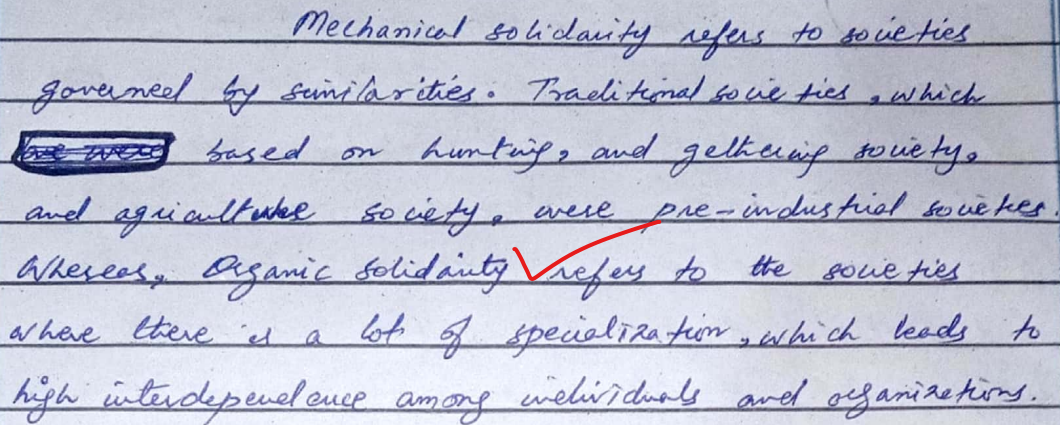 Mechanical solidarity refers to societies
governed by similarities. Traditional societies, which
based on hunting, and gethering society,
and agriculture society, were pre-industrial societies.
Whereas, Organic solidarity refers to the societies
where there is a lot of specialization, which leads to
high interdependence among individuals and organizations.